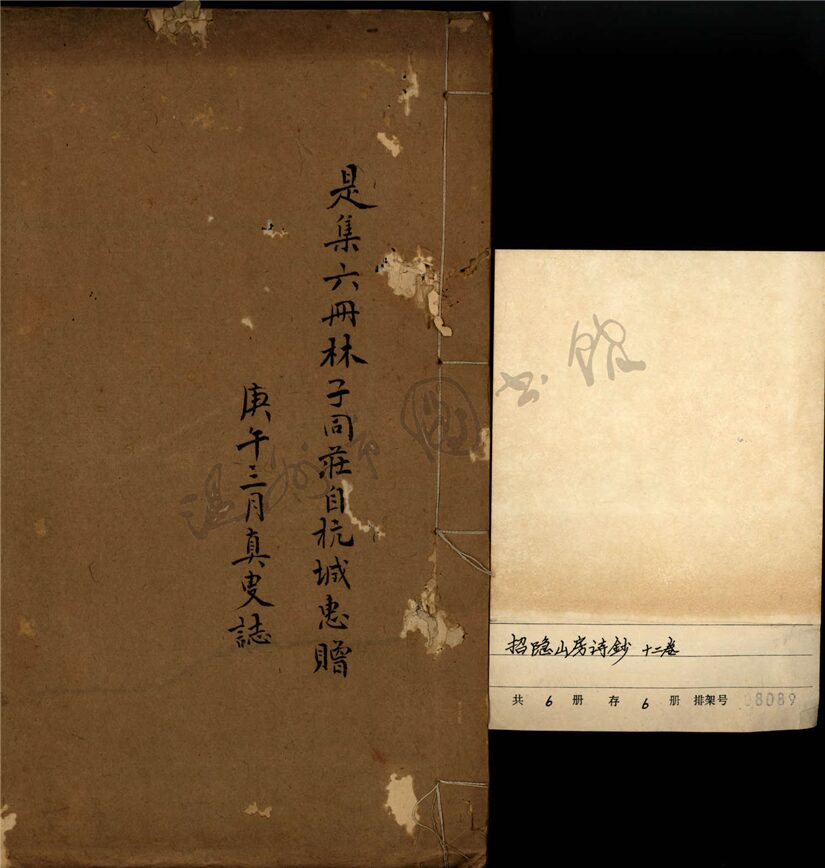 是集六冊林子同莊自杭城惠贈
庚午三月真叟誌
温州市图书馆
招隐山房诗鈔 十二卷
共 6 册 存 6 册 排架号 08089